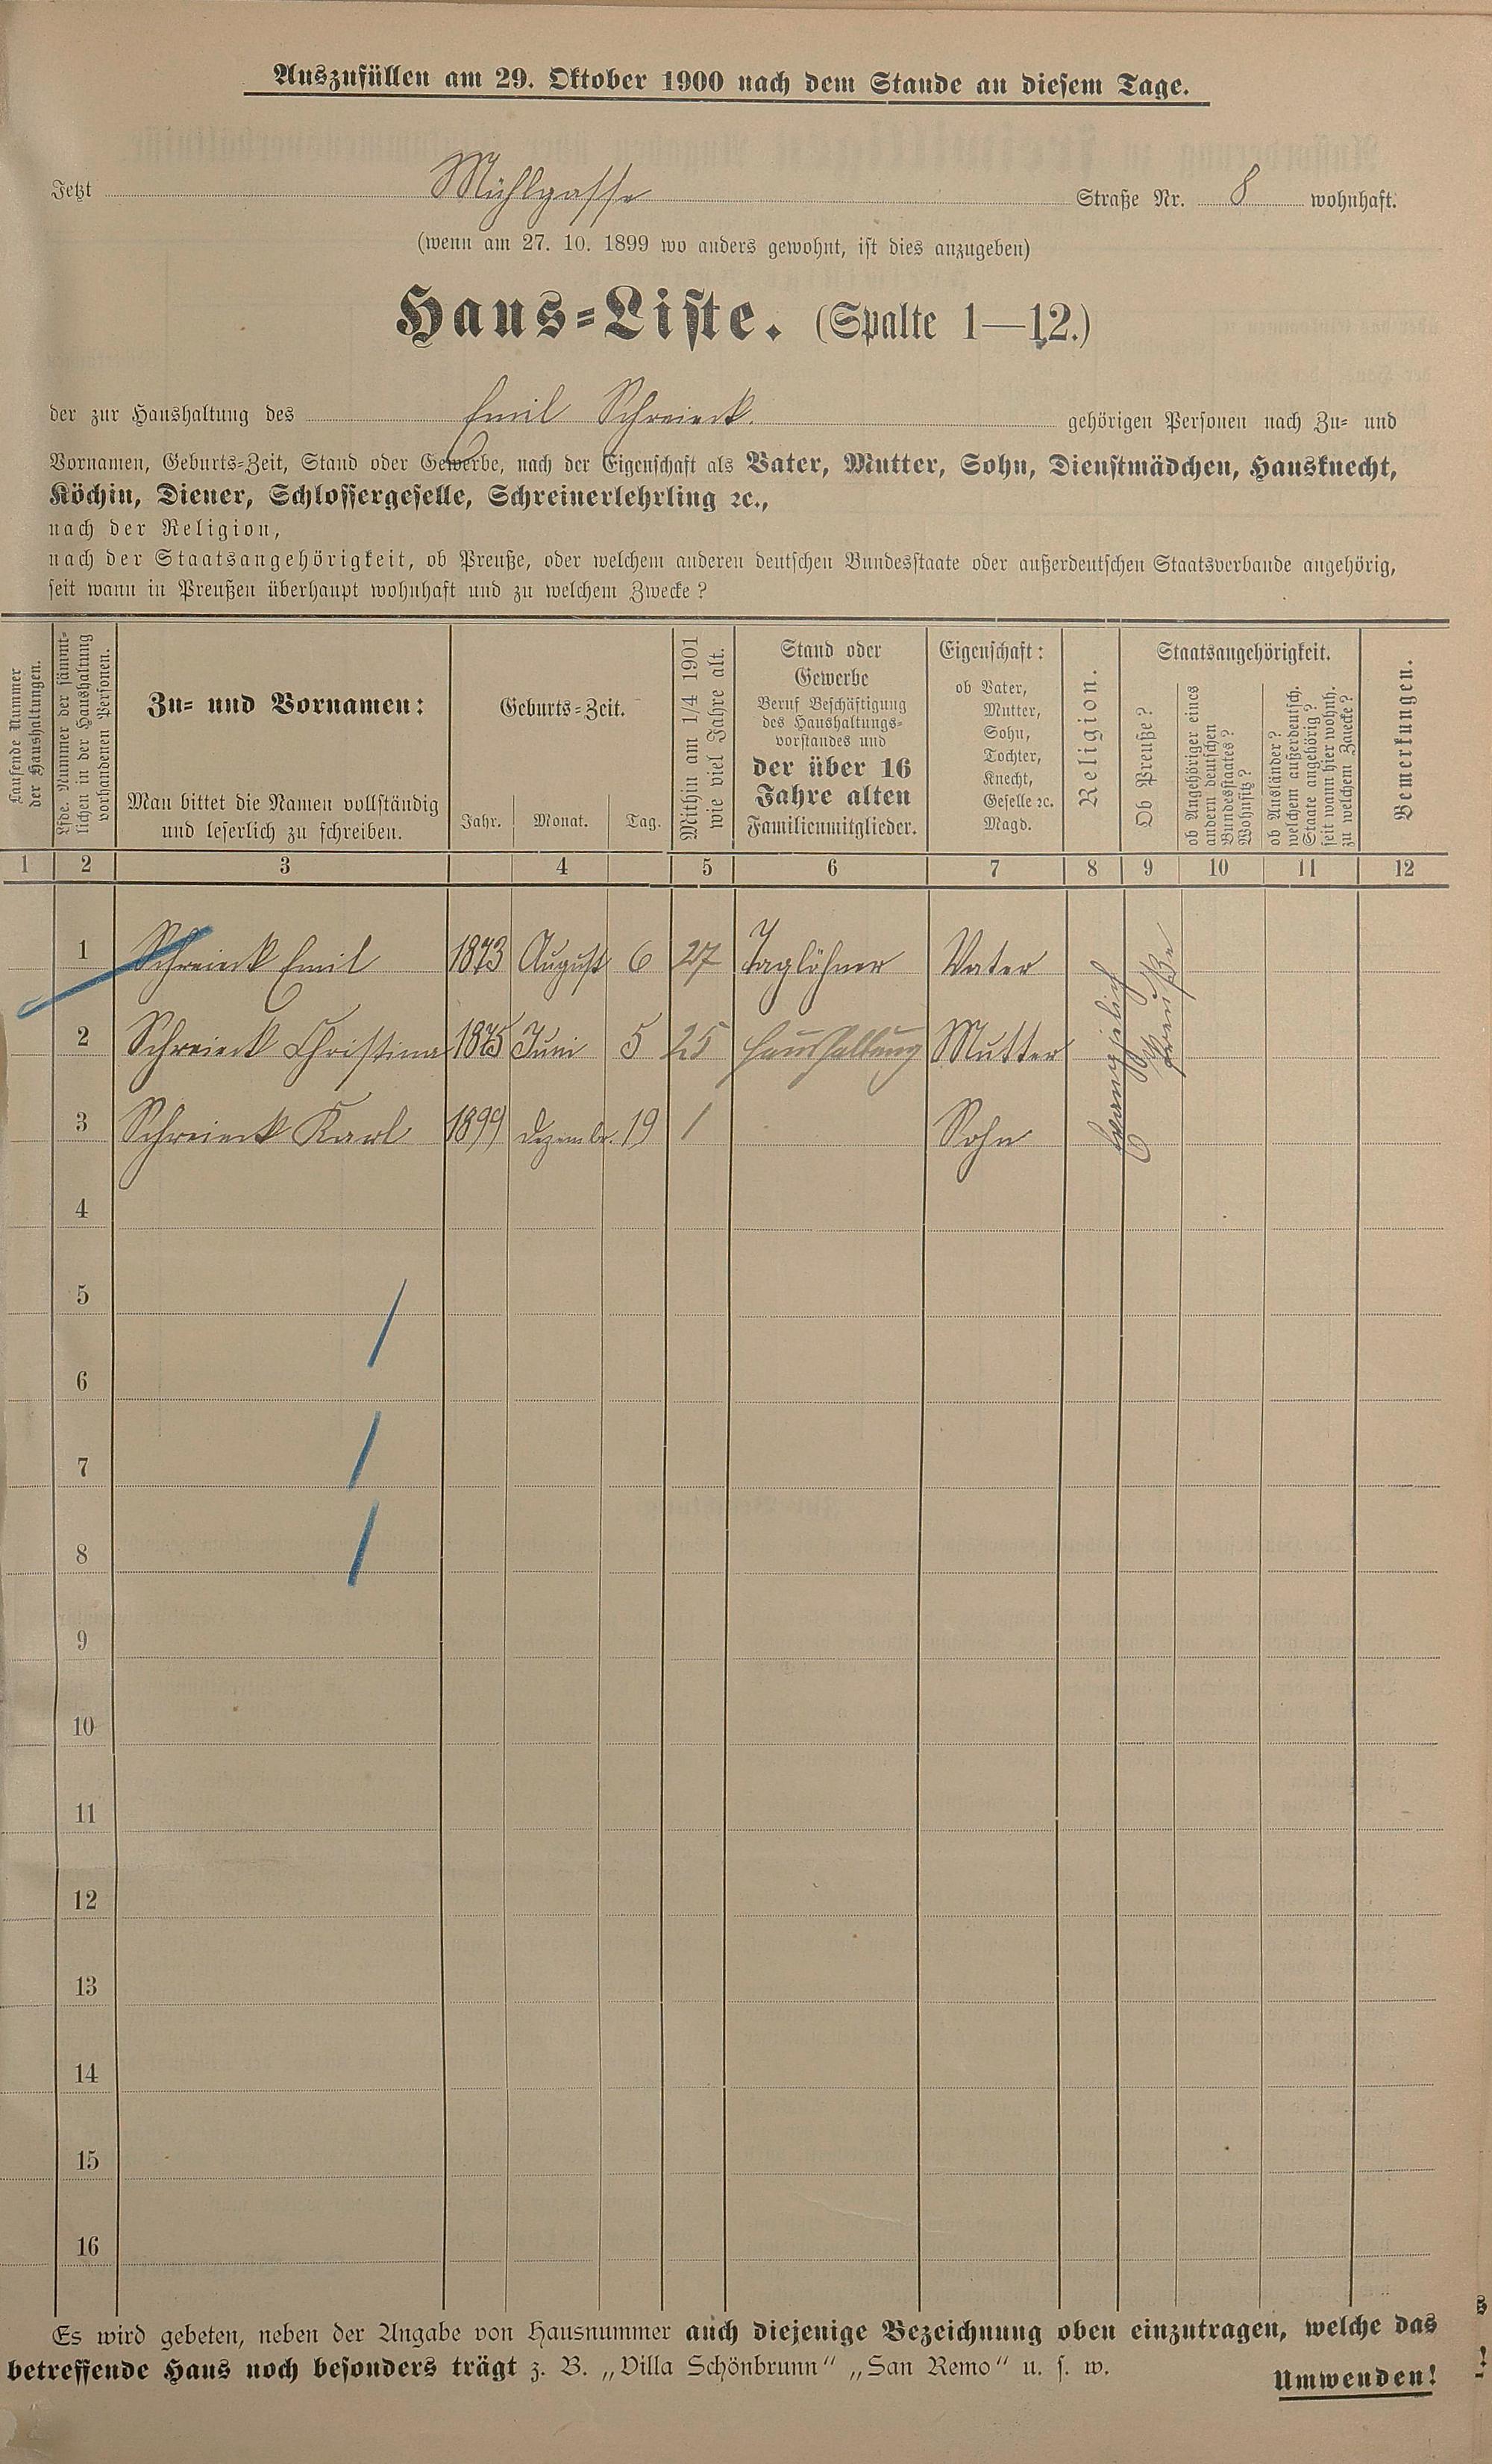 Auszufüllen am 29. Oktober 1900 nach dem Stande an diesem Tage.
Jetzt Mühlgasse Straße Nr. 8 wohnhaft.
(wenn am 27. 10. 1899 wo anders gewohnt, ist dies anzugeben)
Haus-Liste. (Spalte 1—12.)
der zur Haushaltung des Emil Schreieck. gehörigen Personen nach Zu- und
Vornamen, Geburts-Zeit, Stand oder Gewerbe, nach der Eigenschaft als Vater, Mutter, Sohn, Dienstmädchen, Hausknecht,
Köchin, Diener, Schlossergeselle, Schreinerlehrling ꝛc.,
nach der Religion,
nach der Staatsangehörigkeit, ob Preuße, oder welchem anderen deutschen Bundesstaate oder außerdeutschen Staatsverbande angehörig,
seit wann in Preußen überhaupt wohnhaft und zu welchem Zwecke?
Laufende Nummer
der Haushaltungen.
Lfde. Nummer der sämmt-
lichen in der Haushaltung
vorhandenen Personen.
Zu- und Vornamen:
Man bittet die Namen vollständig
und leserlich zu schreiben.
Geburts-Zeit.
Jahr. Monat. Tag.
Mithin am 1/4 1901
wie viel Jahre alt.
Stand oder
Gewerbe
Beruf Beschäftigung
des Haushaltungs-
vorstandes und
der über 16
Jahre alten
Familienmitglieder.
Eigenschaft:
ob Vater,
Mutter,
Sohn,
Tochter,
Knecht,
Geselle ꝛc.
Magd.
Religion.
Staatsangehörigkeit.
Ob Preuße?
ob Angehöriger eines
andern deutschen
Bundesstaates?
Wohnsitz?
ob Ausländer?
welchem außerdeutsch.
Staate angehörig?
seit wann hier wohnh.
zu welchem Zwecke?
Bemerkungen.
1 2 3 4 5 6 7 8 9 10 11 12
1 Schreieck Emil 1873 August 6 27 Taglöhner Vater
2 Schreieck Christina 1875 Juni 5 25 Haushaltung Mutter
3 Schreieck Karl 1899 Dezembr. 19 1 Sohn
Evangelich
Preuße
4
5
6
7
8
9
10
11
12
13
14
15
16
Es wird gebeten, neben der Angabe von Hausnummer auch diejenige Bezeichnung oben einzutragen, welche das
betreffende Haus noch besonders trägt z. B. „Villa Schönbrunn“ „San Remo“ u. s. w.
Umwenden!